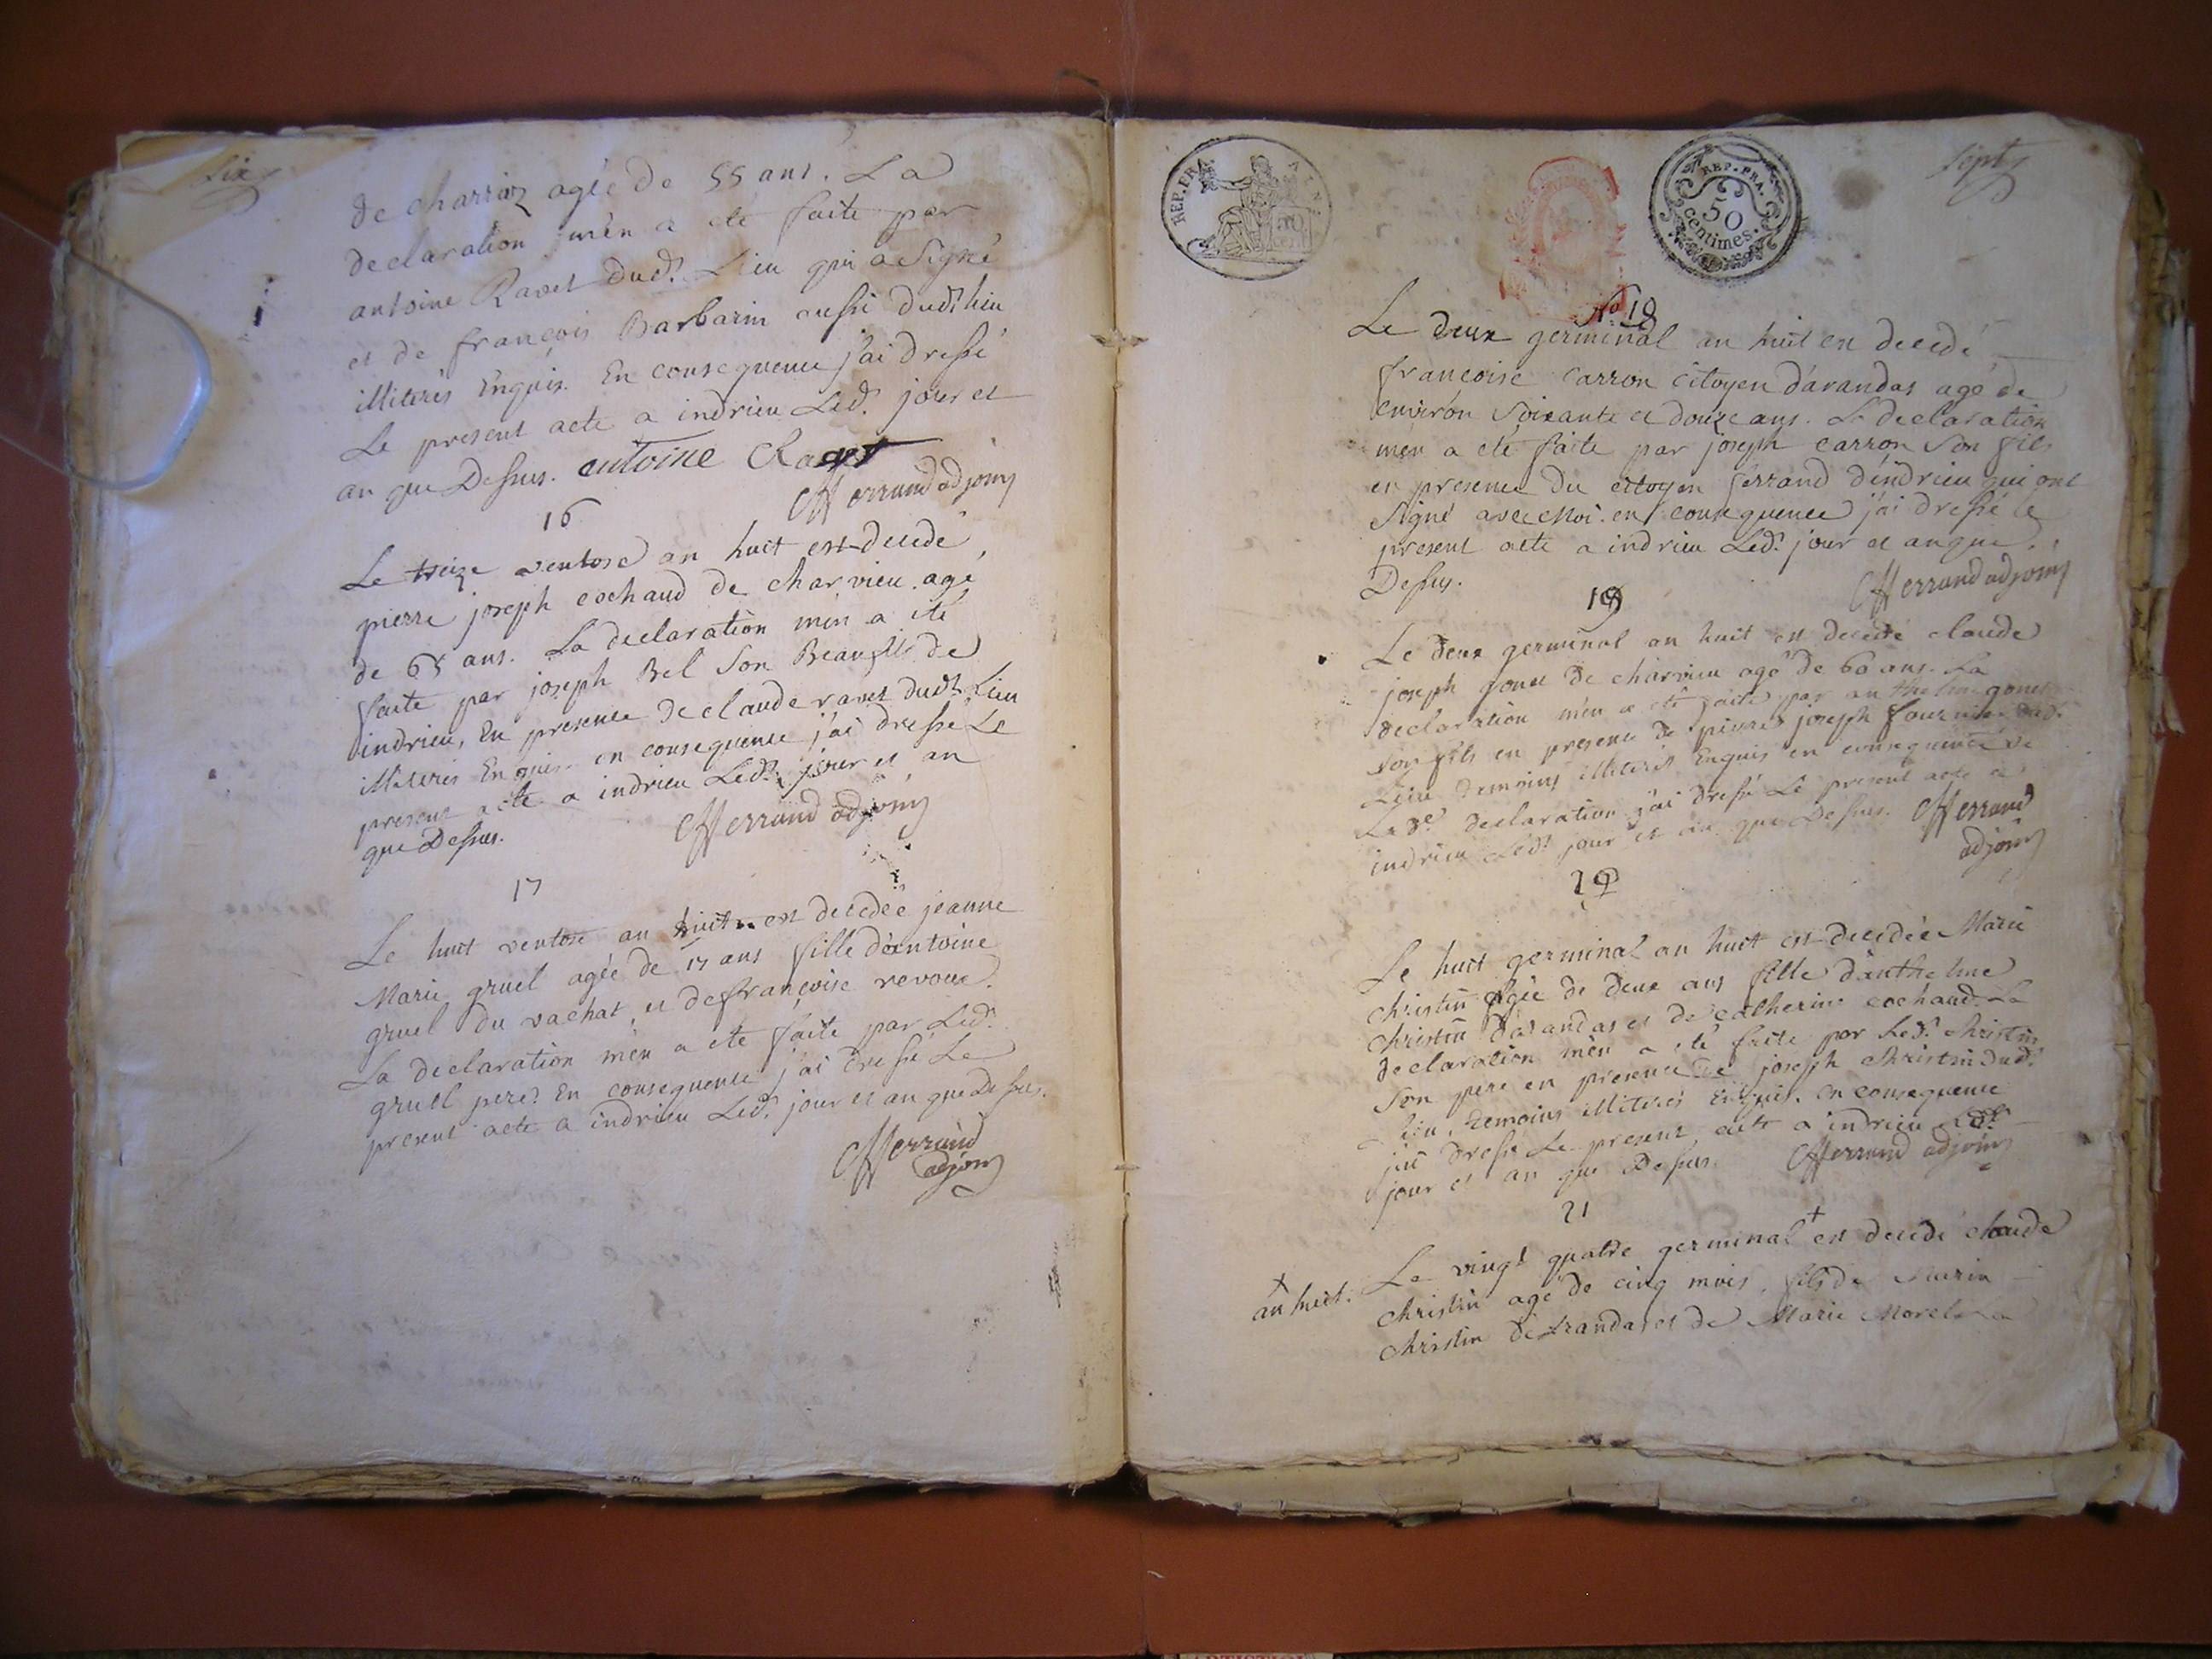 six
de charrioz agée de 55 ans. La
declaration m'en a eté faite par
antoine Ravet dud.t Lieu qui a Signé
et de françois Barbarin aussi dud.t lieu
illiterés Enquis. En consequence j'ai dressé
Le present acte a indrieu Led.t jour et
an que Dessus. antoine Ravet
ferrand adjoint
16
Le treize ventose an huit est decedé
pierre joseph cochaud de charvieu agé
de 65 ans. La declaration m'en a eté
faite par joseph Bel Son Beaufils de
indrieu, En presence de claude ravet dud.t Lieu
illiterés Enquis. en consequence j'ai dressé Le
present acte a indrieu Led.t jour et an
que Dessus. ferrand adjoint
17
Le huit ventose an huit est decedée jeanne
Marie gruel agée de 17 ans fille d'antoine
gruel du vachat, et de françoise revoux.
La declaration m'en a eté faite par Led.t
gruel pere. En consequence j'ai dressé Le
present acte a indrieu Led.t jour et an que Dessus.
ferrand
adjoint
REP. FRA. AIN.
50
cent
REP. FRA.
50
centimes.
sept
N.o 18
Le deux germinal an huit est decedé
francoise carron citoyen d'arandas agé de
environ Soixante et douze ans. La declaration
m'en a eté faite par joseph carron Son fils
en presence du citoyen ferrand d'indrieu qui ont
signé avec Moi. en consequence j'ai dressé le
present acte a indrieu Led.t jour et an que
Dessus. ferrand adjoint
19
Le deux germinal an huit est decedé claude
joseph gonet de charvieu agé de 60 ans. La
declaration m'en a eté faite par anthelme gonet
Son fils en presence de pierre joseph fournier dud.t
Lieu temoins illiterés Enquis en consequence de
La d.e declaration j'ai dressé Le present acte a
indrieu Led.t jour et an que Dessus. ferrand
adjoint
20
Le huit germinal an huit est decedée Marie
christin Agée de deux ans fille d'anthelme
christin d'arandas et de catherine cochaud. La
declaration m'en a eté faite par Led.t christin
Son pere en presence de joseph christin dud.t
Lieu, temoins illiterés Enquis. en consequence
j'ai dressé Le present acte a indrieu Led.t
jour et an que Dessus. ferrand adjoint
21
Le vingt quatre germinal + est decedé claude
+
an huit.
christin agé de cinq mois, fils de Marin
christin d'arandas et de Marie Morel